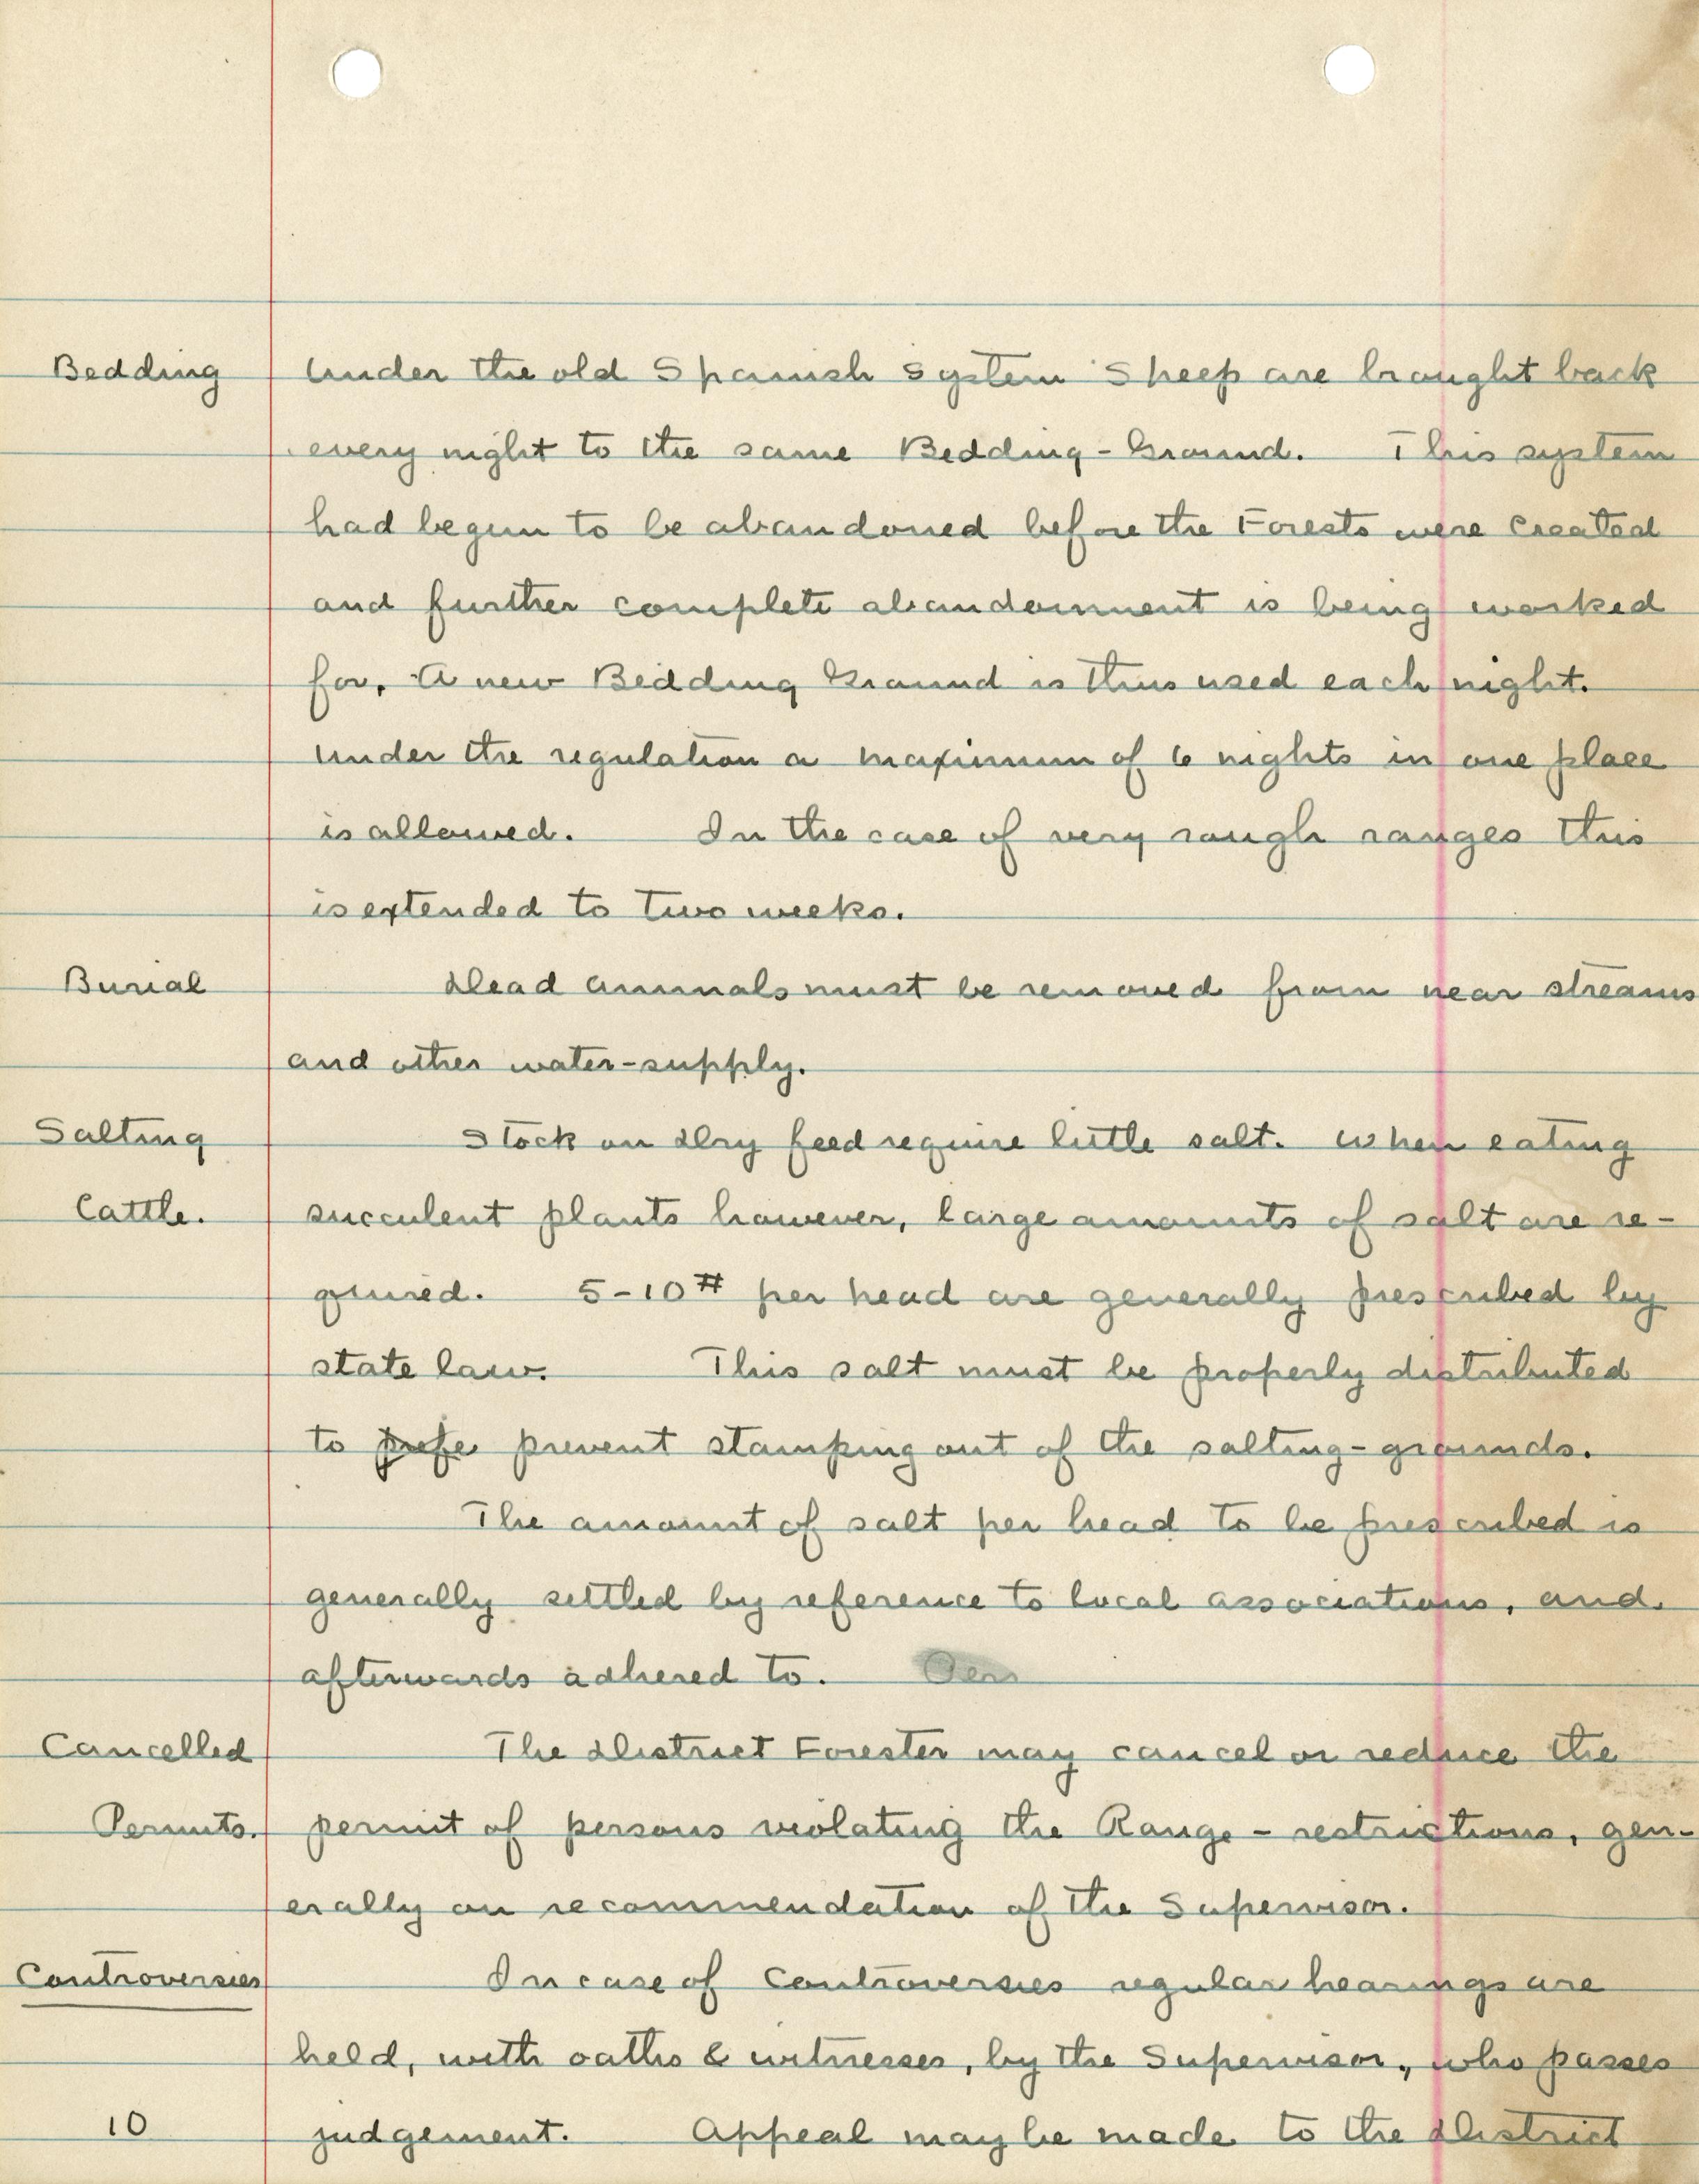 Bedding Under the old Spanish System Sheep are brought back
every night to the same Bedding-Ground. This system
had begun to be abandoned before the Forests were Created
and further complete abandonment is being worked
for. A new Bedding Ground is thus used each night.
Under the regulation a maximum of 6 nights in one place
is allowed. In the case of very rough ranges this
is extended to two weeks.
Burial Dead animals must be removed from near streams
and other water-supply.
Salting Stock on dry feed require little salt. When eating
Cattle. succulent plants however, large amounts of salt are re-
quired. 5-10# per head are generally prescribed by
state law. This salt must be properly distributed
to prevent stamping out of the salting-grounds.
The amount of salt per head to be prescribed is
generally settled by reference to local associations, and
afterwards adhered to. Per
Cancelled The District Forester may cancel or reduce the
Permits. permit of persons violating the Range-restrictions, gen-
erally on recommendation of the Supervisor.
Controversies In case of Controversies regular hearings are
held, with oaths & witnesses, by the Supervisor, who passes
10 judgement. Appeal may be made to the District